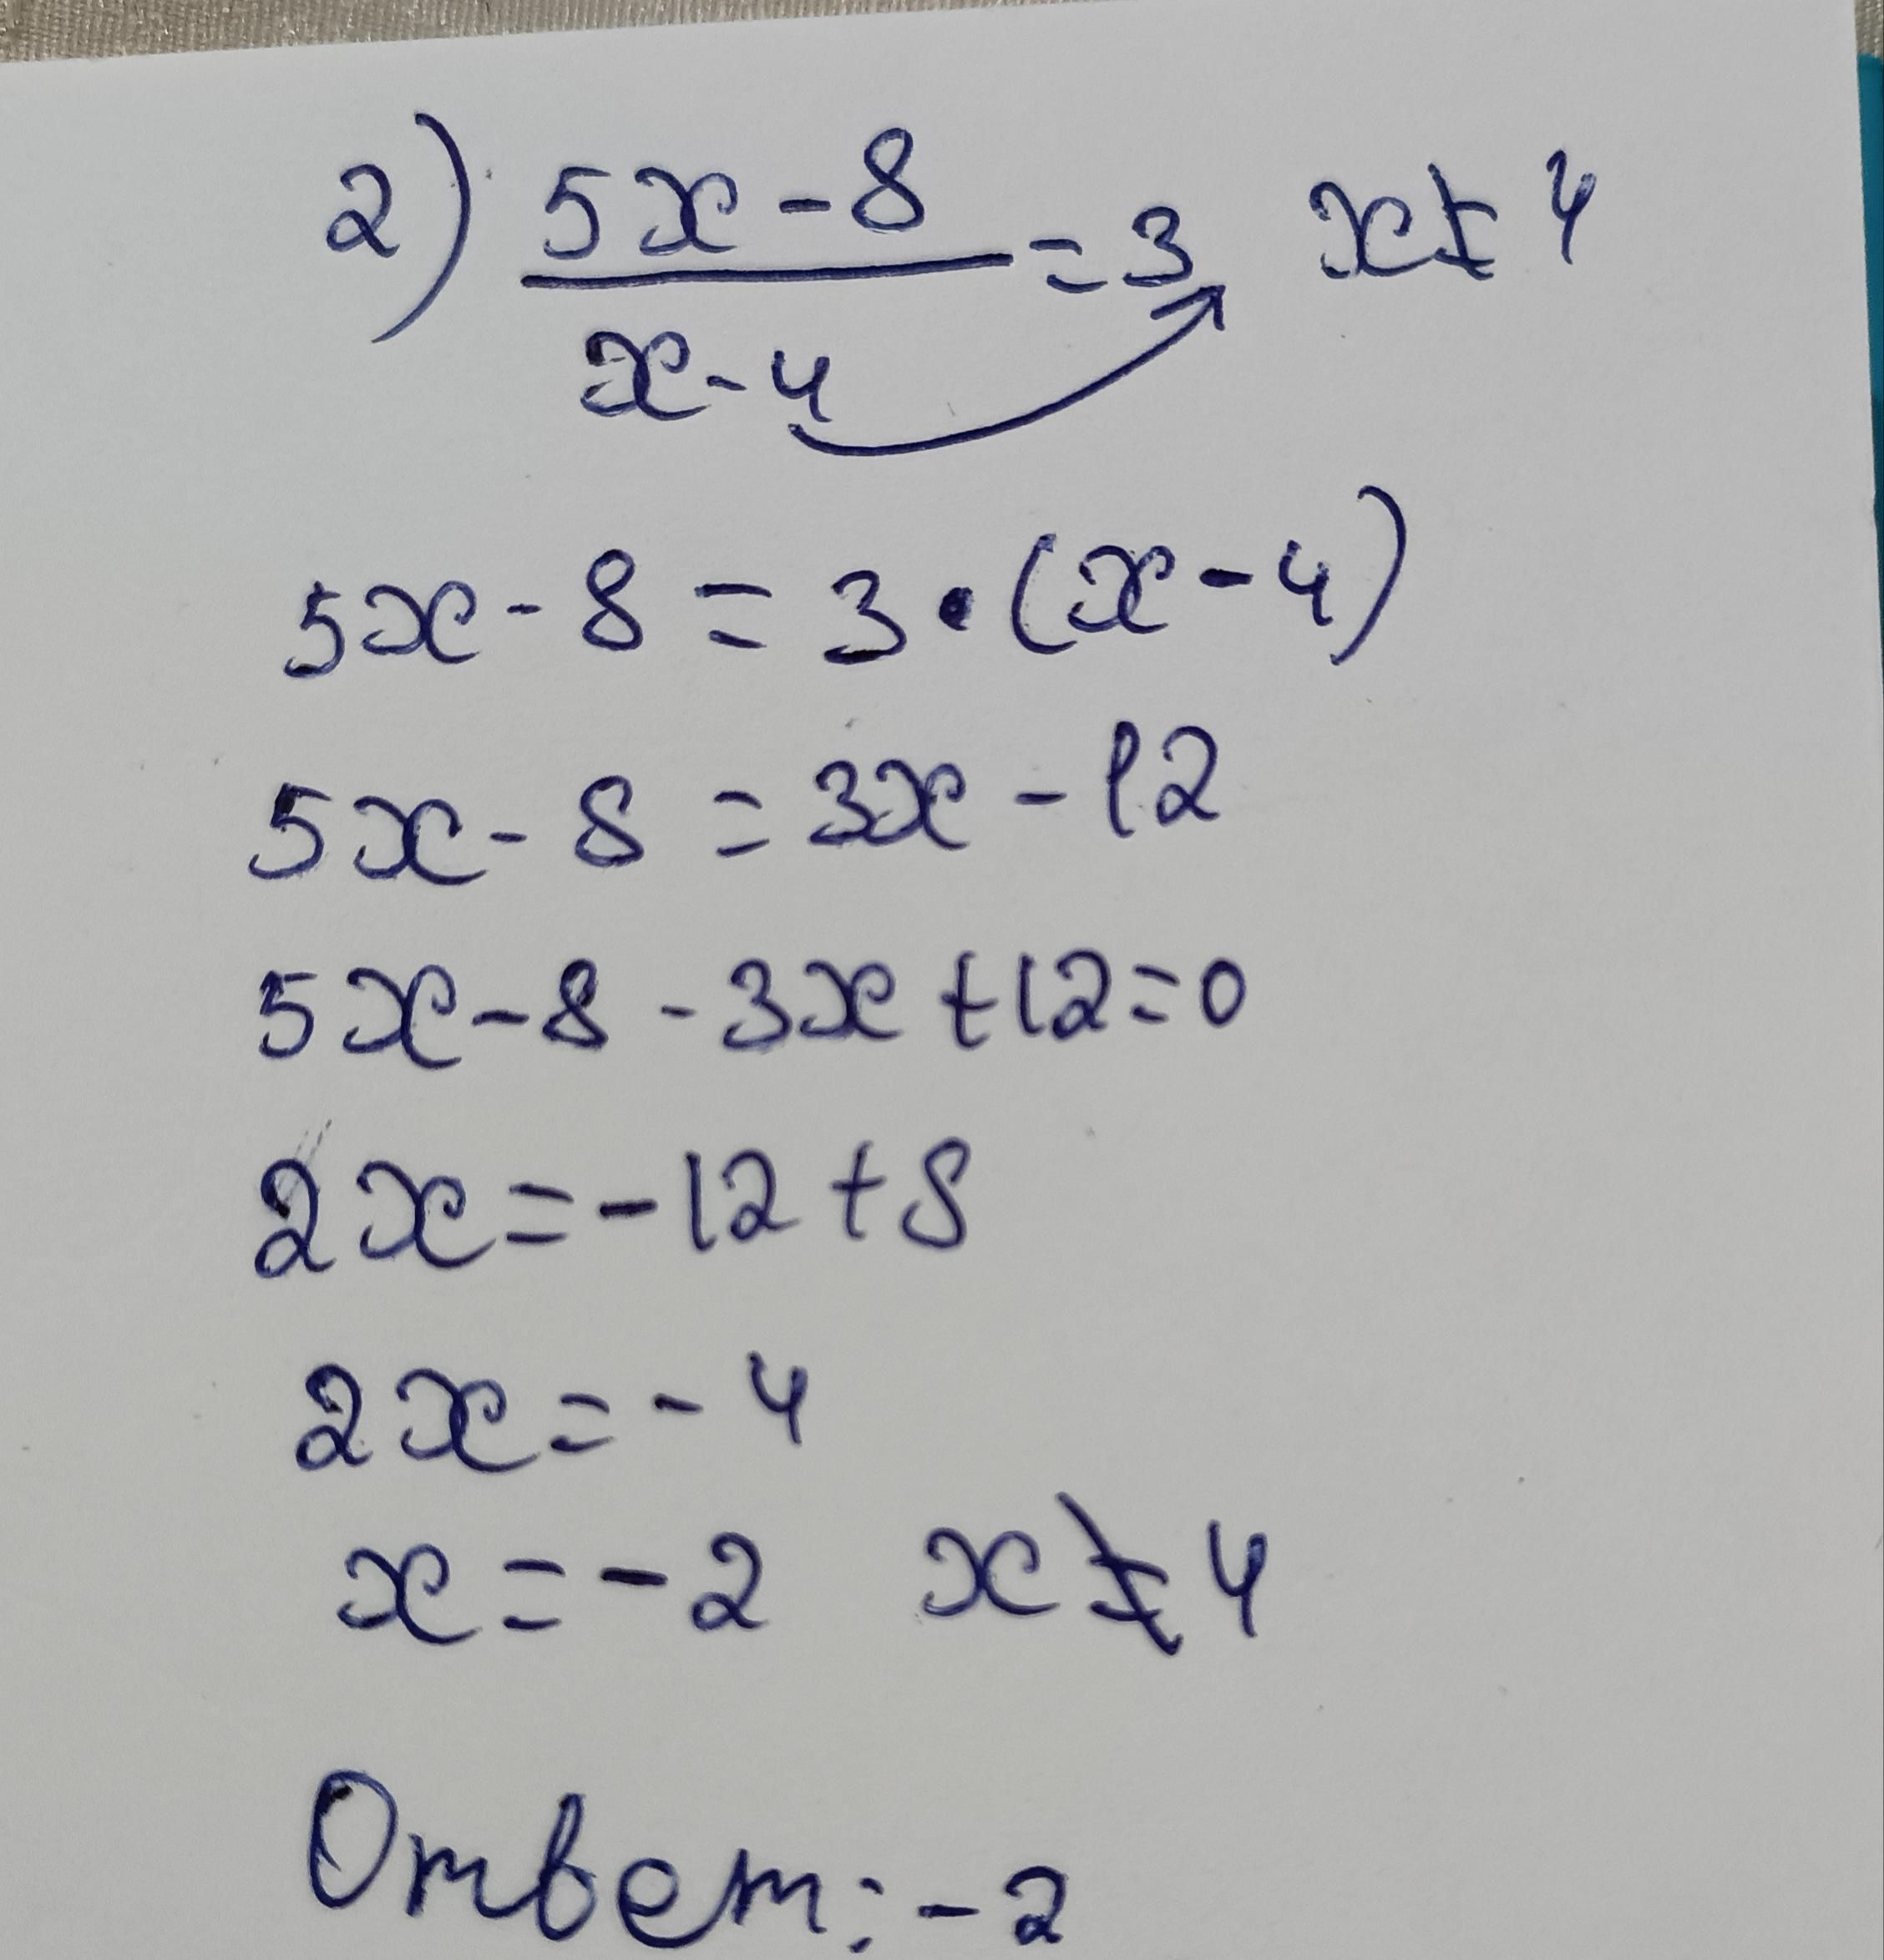 2) (5x-8)/(x-4) = 3 x≠4
5x-8 = 3·(x-4)
5x-8 = 3x-12
5x-8-3x+12=0
2x=-12+8
2x=-4
x=-2 x≠4
Ответ: -2